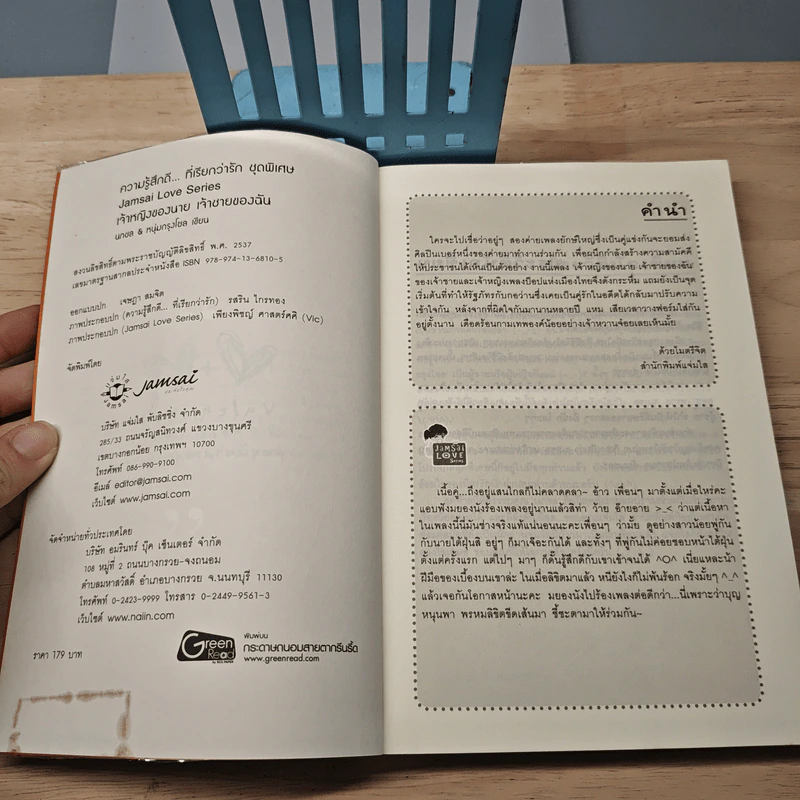 ความรู้สึกดี... ที่เรียกว่ารัก ชุดพิเศษ
Jamsai Love Series
เจ้าหญิงของนาย เจ้าชายของฉัน
นกซล & หนุ่มกรุงโซล เขียน
สงวนลิขสิทธิ์ตามพระราชบัญญัติลิขสิทธิ์ พ.ศ. 2537
เลขมาตรฐานสากลประจำหนังสือ ISBN 978-974-13-6810-5
ออกแบบปก เจษฎา สมจิต
ภาพประกอบปก (ความรู้สึกดี... ที่เรียกว่ารัก) รสริน ไกรทอง
ภาพประกอบปก (Jamsai Love Series) เพียงพิชญ์ ศาสตร์คศิ (Vic)
จัดพิมพ์โดย
jamsai
บริษัท แจ่มใส พับลิชชิ่ง จำกัด
285/33 ถนนจรัญสนิทวงศ์ แขวงบางขุนศรี
เขตบางกอกน้อย กรุงเทพฯ 10700
โทรศัพท์ 086-990-9100
อีเมล์ editor@jamsai.com
เว็บไซต์ www.jamsai.com
จัดจำหน่ายทั่วประเทศโดย
บริษัท อมรินทร์ บุ๊ค เซ็นเตอร์ จำกัด
108 หมู่ที่ 2 ถนนบางกรวย-จงถนอม
ตำบลมหาสวัสดิ์ อำเภอบางกรวย จ.นนทบุรี 11130
โทรศัพท์ 0-2423-9999 โทรสาร 0-2449-9561-3
เว็บไซต์ www.naiin.com
ราคา 179 บาท
Green Read
พิมพ์บน
กระดาษถนอมสายตากรีนรี้ด
www.greenread.com
คำนำ
ใครจะไปเชื่อว่าอยู่ๆ สองค่ายเพลงยักษ์ใหญ่ซึ่งเป็นคู่แข่งกันจะยอมส่ง
ศิลปินเบอร์หนึ่งของค่ายมาทำงานร่วมกัน เพื่อผนึกกำลังสร้างความสามัคคี
ให้ประชาชนได้เห็นเป็นตัวอย่าง งานนี้เพลง เจ้าหญิงของนาย เจ้าชายของฉัน
ของเจ้าชายและเจ้าหญิงเพลงป็อปแห่งเมืองไทยจึงดังกระหึ่ม แถมยังเป็นจุด
เริ่มต้นที่ทำให้รัฐภัทรกับกอหว่านซึ่งเคยเป็นคู่รักในอดีตได้กลับมาปรับความ
เข้าใจกัน หลังจากที่ผิดใจกันมานานหลายปี แหม เสียเวลาวางฟอร์มใส่กัน
อยู่ตั้งนาน เดือดร้อนกามเทพองค์น้อยอย่างเจ้าหวานจ๋อยเลยเห็นมั้ย
ด้วยไมตรีจิต
สำนักพิมพ์แจ่มใส
JAMSAI LOVE Series
เนื้อคู่...ถึงอยู่แสนไกลก็ไม่คลาดคลา~ อ้าว เพื่อนๆ มาตั้งแต่เมื่อไหร่คะ
แอบฟังมยองนังร้องเพลงอยู่นานแล้วสิท่า ว้าย อ๊ายอาย >_< ว่าแต่เนื้อหา
ในเพลงนี้นี่มันช่างจริงแท้แน่นอนนะคะเพื่อนๆ ว่ามั้ย ดูอย่างสาวน้อยพู่กัน
กับนายใต้ฝุ่นสิ อยู่ๆ ก็มาเจอะกันได้ และทั้งๆ ที่พู่กันไม่ค่อยชอบหน้าใต้ฝุ่น
ตั้งแต่ครั้งแรก แต่ไปๆ มาๆ ก็ดั๊นรู้สึกดีกับเขาเข้าจนได้ ^O^ เนี่ยแหละน้า
ฝีมือของเบื้องบนเขาล่ะ ในเมื่อลิขิตมาแล้ว หนียังไงก็ไม่พ้นร้อก จริงมั้ยๆ ^_^
แล้วเจอกันโอกาสหน้านะคะ มยองนังไปร้องเพลงต่อดีกว่า...นี่เพราะว่าบุญ
หนุนพา พรหมลิขิตขีดเส้นมา ชี้ชะตามาให้ร่วมกัน~